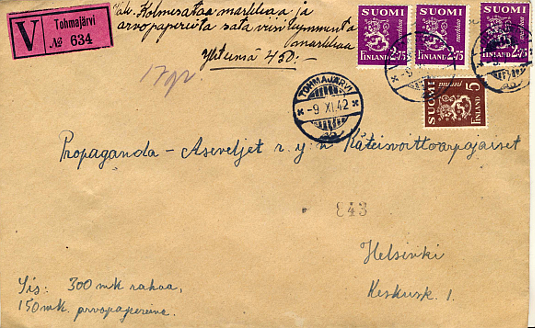 V Tohmajärvi
№ 634
Vak. Kolmesataa markkaa ja
arvopapereita sata viisikymmentä
markkaa
Yhteensä 450:-
SUOMI markkaa 2:75 FINLAND
SUOMI markkaa 2:75 FINLAND
SUOMI markkaa 2:75 FINLAND
SUOMI markkaa 5 FINLAND
TOHMAJÄRVI
-9 XI.42
Propaganda-Aseveljet r.y:n Käteisvoittoarpajaiset
E43
Helsinki
Keskusk. 1.
Sis: 300 mk rahaa,
150 mk. arvopapereina.